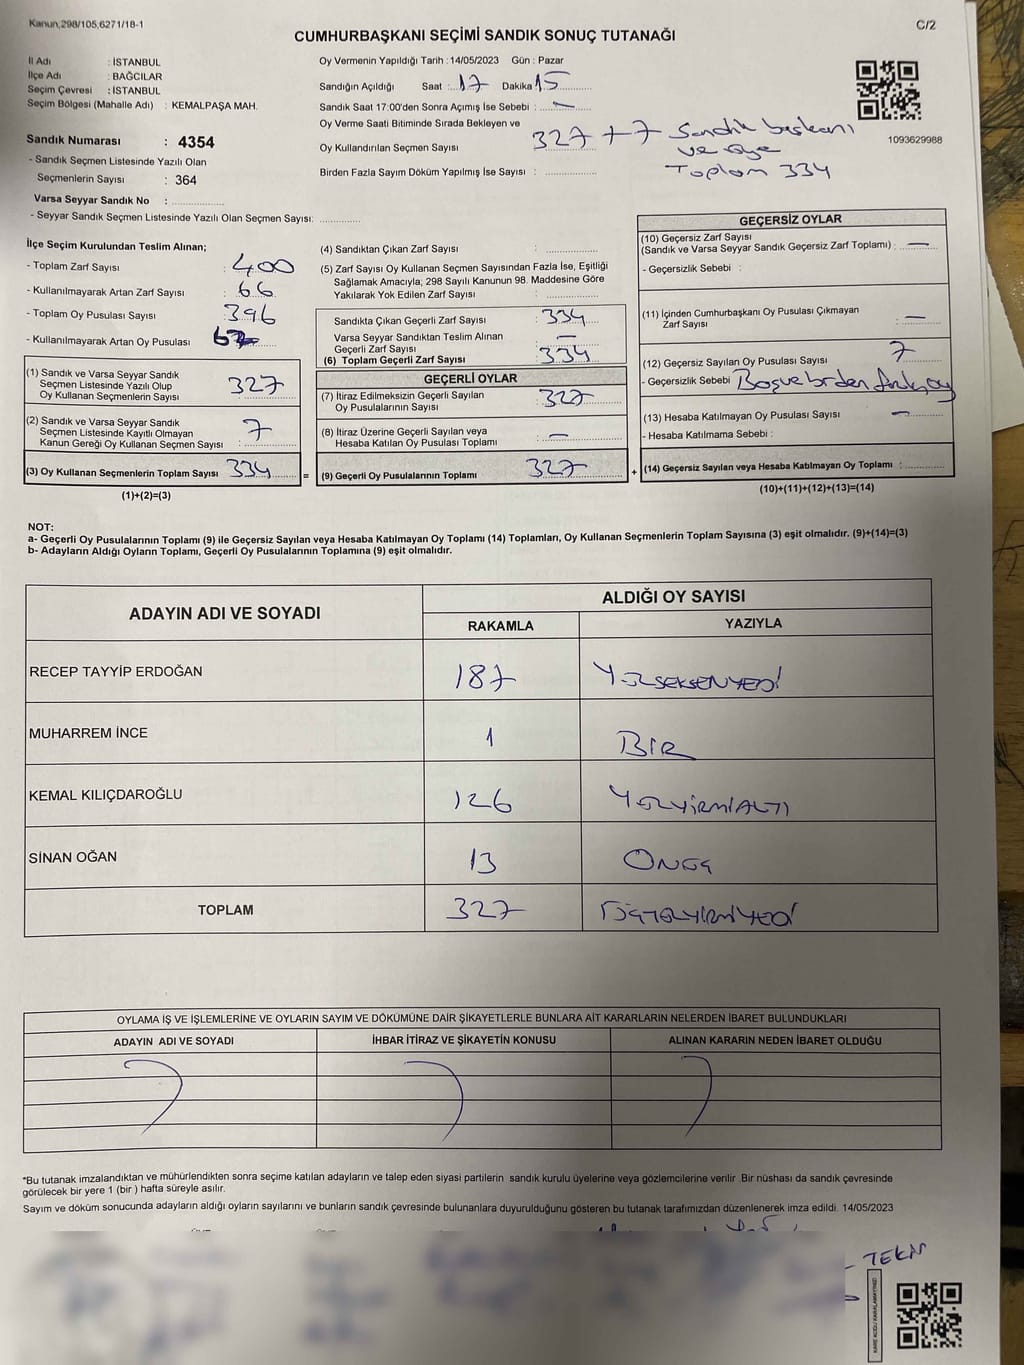 Kanun,298/105,6271/18-1
C/2
CUMHURBAŞKANI SEÇİMİ SANDIK SONUÇ TUTANAĞI
İl Adı : İSTANBUL
İlçe Adı : BAĞCILAR
Seçim Çevresi : İSTANBUL
Seçim Bölgesi (Mahalle Adı) : KEMALPAŞA MAH.
Sandık Numarası : 4354
- Sandık Seçmen Listesinde Yazılı Olan
Seçmenlerin Sayısı : 364
Varsa Seyyar Sandık No :
- Seyyar Sandık Seçmen Listesinde Yazılı Olan Seçmen Sayısı:
Oy Vermenin Yapıldığı Tarih : 14/05/2023 Gün : Pazar
Sandığın Açıldığı Saat : 17 Dakika 15
Sandık Saat 17:00'den Sonra Açımış İse Sebebi : —
Oy Verme Saati Bitiminde Sırada Bekleyen ve
Oy Kullandırılan Seçmen Sayısı : 327 + 7 Sandık başkanı
ve üye
Toplam 334
Birden Fazla Sayım Döküm Yapılmış İse Sayısı :
1093629988
İlçe Seçim Kurulundan Teslim Alınan;
- Toplam Zarf Sayısı : 400
- Kullanılmayarak Artan Zarf Sayısı : 66
- Toplam Oy Pusulası Sayısı : 396
- Kullanılmayarak Artan Oy Pusulası
(1) Sandık ve Varsa Seyyar Sandık
Seçmen Listesinde Yazılı Olup
Oy Kullanan Seçmenlerin Sayısı 327
(2) Sandık ve Varsa Seyyar Sandık
Seçmen Listesinde Kayıtlı Olmayan
Kanun Gereği Oy Kullanan Seçmen Sayısı : 7
(3) Oy Kullanan Seçmenlerin Toplam Sayısı 334
(1)+(2)=(3)
(4) Sandıktan Çıkan Zarf Sayısı :
(5) Zarf Sayısı Oy Kullanan Seçmen Sayısından Fazla İse, Eşitliği
Sağlamak Amacıyla; 298 Sayılı Kanunun 98. Maddesine Göre
Yakılarak Yok Edilen Zarf Sayısı :
Sandıkta Çıkan Geçerli Zarf Sayısı : 334
Varsa Seyyar Sandıktan Teslim Alınan
Geçerli Zarf Sayısı : —
(6) Toplam Geçerli Zarf Sayısı : 334
GEÇERLİ OYLAR
(7) İtiraz Edilmeksizin Geçerli Sayılan
Oy Pusulalarının Sayısı : 327
(8) İtiraz Üzerine Geçerli Sayılan veya
Hesaba Katılan Oy Pusulası Toplamı : —
= (9) Geçerli Oy Pusulalarının Toplamı 327
GEÇERSİZ OYLAR
(10) Geçersiz Zarf Sayısı
(Sandık ve Varsa Seyyar Sandık Geçersiz Zarf Toplamı) : —
- Geçersizlik Sebebi :
(11) İçinden Cumhurbaşkanı Oy Pusulası Çıkmayan
Zarf Sayısı : —
(12) Geçersiz Sayılan Oy Pusulası Sayısı : 7
- Geçersizlik Sebebi : Boş ve birden fazla oy
(13) Hesaba Katılmayan Oy Pusulası Sayısı : —
- Hesaba Katılmama Sebebi :
+ (14) Geçersiz Sayılan veya Hesaba Katılmayan Oy Toplamı :
(10)+(11)+(12)+(13)=(14)
NOT:
a- Geçerli Oy Pusulalarının Toplamı (9) ile Geçersiz Sayılan veya Hesaba Katılmayan Oy Toplamı (14) Toplamları, Oy Kullanan Seçmenlerin Toplam Sayısına (3) eşit olmalıdır. (9)+(14)=(3)
b- Adayların Aldığı Oyların Toplamı, Geçerli Oy Pusulalarının Toplamına (9) eşit olmalıdır.
ADAYIN ADI VE SOYADI
ALDIĞI OY SAYISI
RAKAMLA YAZIYLA
RECEP TAYYİP ERDOĞAN 187 YÜZSEKSENYEDİ
MUHARREM İNCE 1 BİR
KEMAL KILIÇDAROĞLU 126 YÜZYİRMİALTI
SİNAN OĞAN 13 ONÜÇ
TOPLAM 327 ÜÇYÜZYİRMİYEDİ
OYLAMA İŞ VE İŞLEMLERİNE VE OYLARIN SAYIM VE DÖKÜMÜNE DAİR ŞİKAYETLERLE BUNLARA AİT KARARLARIN NELERDEN İBARET BULUNDUKLARI
ADAYIN ADI VE SOYADI İHBAR İTİRAZ VE ŞİKAYETİN KONUSU ALINAN KARARIN NEDEN İBARET OLDUĞU
*Bu tutanak imzalandıktan ve mühürlendikten sonra seçime katılan adayların ve talep eden siyasi partilerin sandık kurulu üyelerine veya gözlemcilerine verilir .Bir nüshası da sandık çevresinde
görülecek bir yere 1 (bir ) hafta süreyle asılır.
Sayım ve döküm sonucunda adayların aldığı oyların sayılarını ve bunların sandık çevresinde bulunanlara duyurulduğunu gösteren bu tutanak tarafımızdan düzenlenerek imza edildi. 14/05/2023
TEKİN
KARE KODU KARALAMAYINIZ!